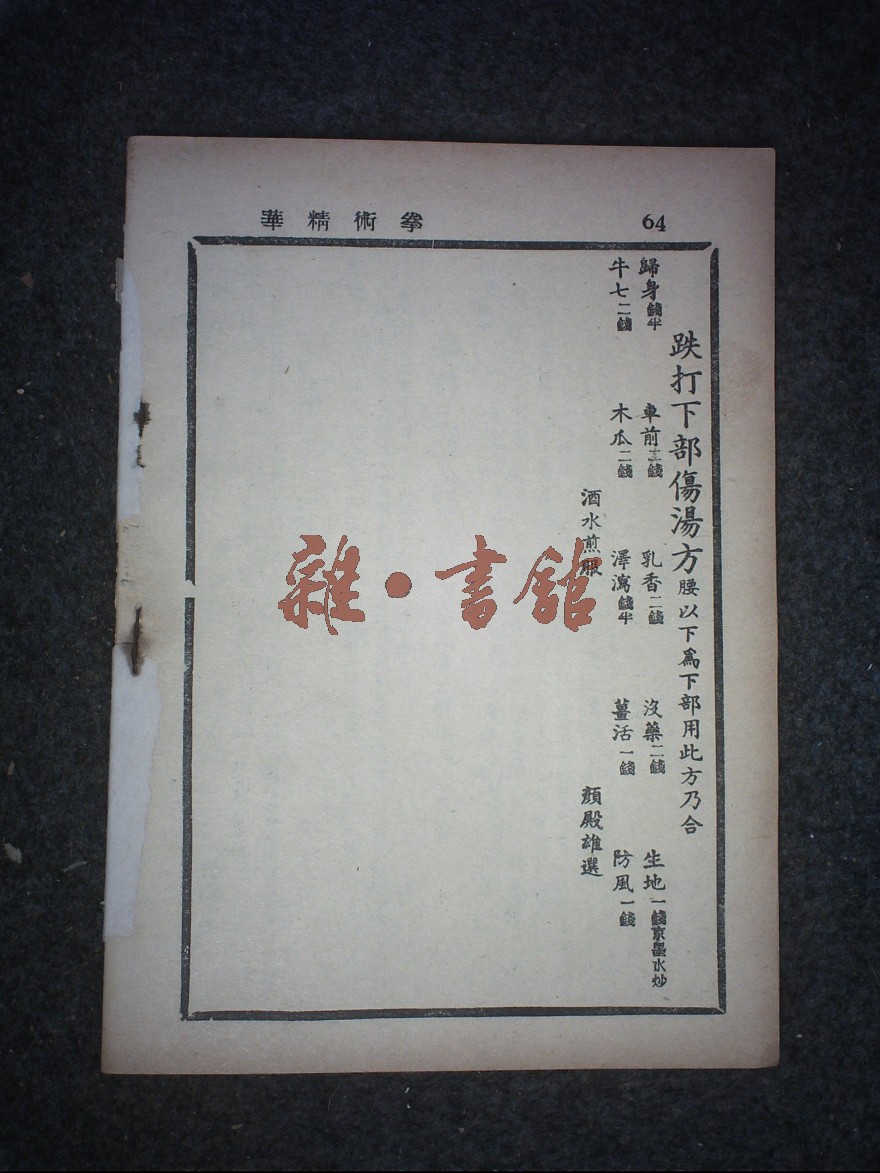 華精術拳
64
跌打下部傷湯方腰以下爲下部用此方乃合
歸身錢半 車前三錢 乳香二錢 沒藥二錢 生地一錢京墨水炒
牛七二錢 木瓜二錢 澤瀉錢半 薑活一錢 防風一錢
酒水煎服 顏殿雄選
雜·書館